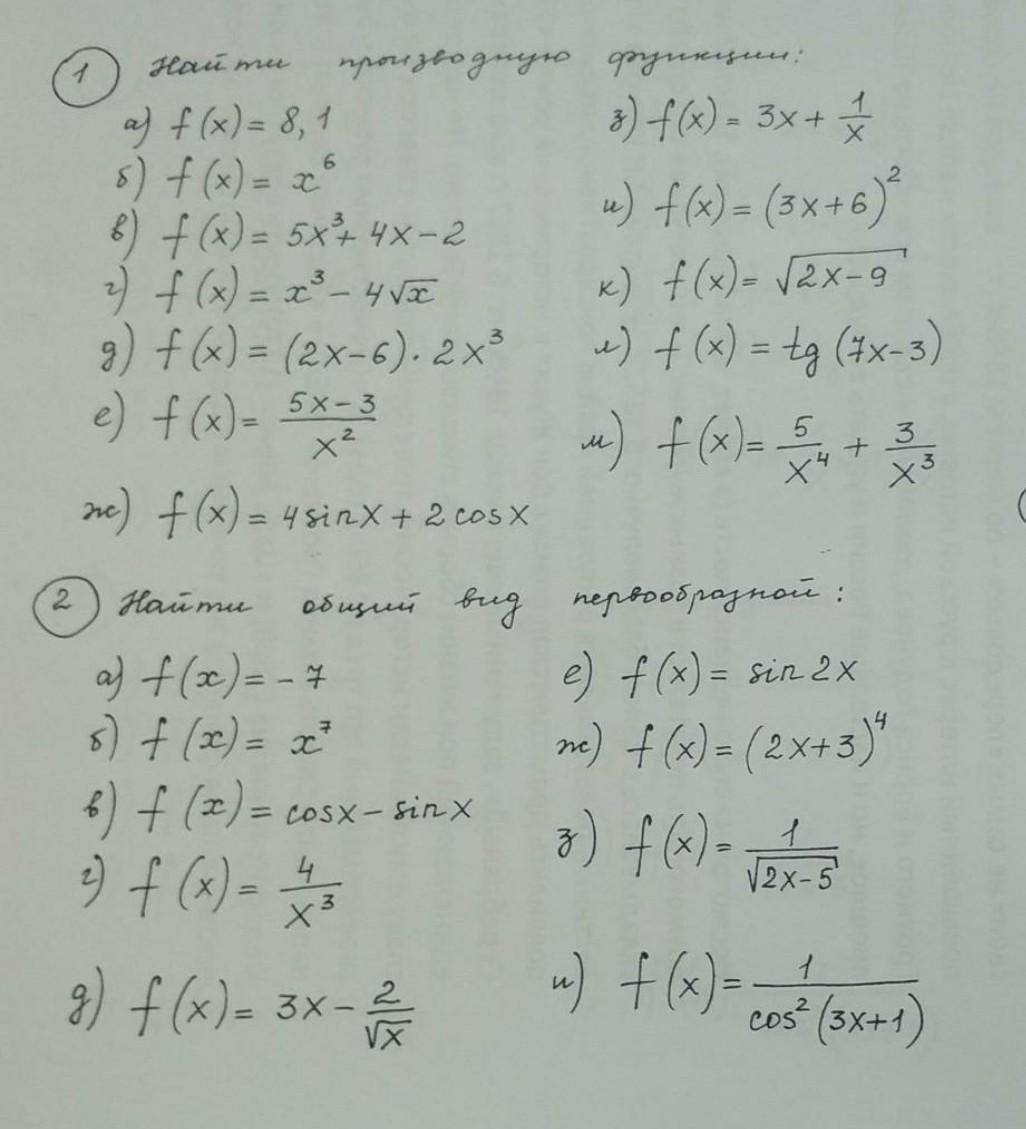 1 Найти производную функции:
а) f(x) = 8,1
б) f(x) = x⁶
в) f(x) = 5x³ + 4x − 2
г) f(x) = x³ − 4√x
д) f(x) = (2x−6) · 2x³
е) f(x) = (5x−3)/x²
ж) f(x) = 4 sin x + 2 cos x
з) f(x) = 3x + 1/x
и) f(x) = (3x+6)²
к) f(x) = √(2x−9)
л) f(x) = tg (7x−3)
м) f(x) = 5/x⁴ + 3/x³
2 Найти общий вид первообразной:
а) f(x) = −7
б) f(x) = x⁷
в) f(x) = cos x − sin x
г) f(x) = 4/x³
д) f(x) = 3x − 2/√x
е) f(x) = sin 2x
ж) f(x) = (2x+3)⁴
з) f(x) = 1/√(2x−5)
и) f(x) = 1/cos²(3x+1)